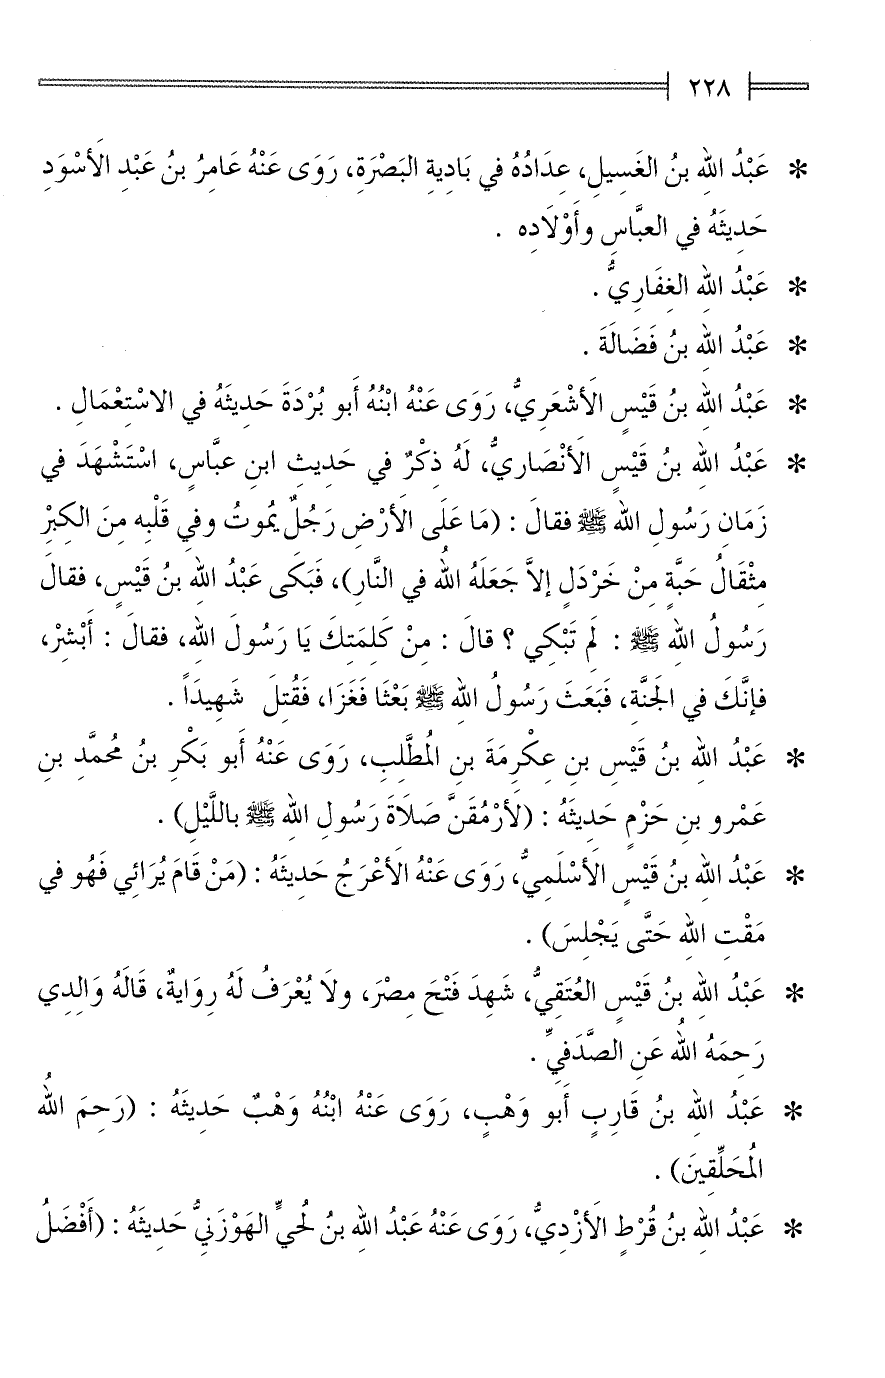 ٢٢٨
* عَبْدُ اللهِ بنُ الغَسِيلِ، عِدَادُهُ في بَادِيةِ البَصْرَةِ، رَوَى عَنْهُ عَامِرُ بنُ عَبْدِ الأَسْوَدِ
حَدِيثَهُ في العبَّاسِ وأَوْلَادِه .
* عَبْدُ اللهِ الغِفَارِيُّ .
* عَبْدُ اللهِ بنُ فَضَالَةَ .
* عَبْدُ اللهِ بنُ قَيْسٍ الأَشْعَرِيُّ، رَوَى عَنْهُ ابْنُهُ أَبو بُرْدَةَ حَدِيثَهُ في الاسْتِعْمَالِ .
* عَبْدُ اللهِ بنُ قَيْسٍ الأَنْصَارِيُّ، لَهُ ذِكْرٌ في حَدِيثِ ابنِ عبَّاسٍ، اسْتَشْهَدَ في
زَمَانِ رَسُولِ اللهِ ﷺ فقالَ : (مَا عَلَى الأَرْضِ رَجُلٌ يمُوتُ وفي قَلْبِه مِنَ الكِبْرِ
مِثْقَالُ حَبَّةٍ مِنْ خَرْدَلٍ إلاَّ جَعَلَهُ اللهُ في النَّارِ)، فَبَكَى عَبْدُ اللهِ بنُ قَيْسٍ، فقالَ
رَسُولُ اللهِ ﷺ : لَمِ تَبْكِي ؟ قالَ : مِنْ كَلِمَتِكَ يَا رَسُولَ اللهِ، فقالَ : أَبْشِرْ،
فإنَّكَ في الجَنَّةِ، فَبَعَثَ رَسُولُ اللهِ ﷺ بَعْثَا فَغَزَا، فَقُتِلَ شَهِيدَاً .
* عَبْدُ اللهِ بنُ قَيْسِ بنِ عِكْرِمَةَ بنِ المُطَّلِبِ، رَوَى عَنْهُ أَبو بَكْرِ بنُ مُحمَّدِ بنِ
عَمْرو بنِ حَزْمٍ حَدِيثَهُ : (لأَرْمُقَنَّ صَلَاةَ رَسُولِ اللهِ ﷺ باللَّيْلِ) .
* عَبْدُ اللهِ بنُ قَيْسٍ الأَسْلَمِيُّ، رَوَى عَنْهُ الأَعْرَجُ حَدِيثَهُ : (مَنْ قَامَ يُرَائِي فَهُو في
مَقْتِ اللهِ حَتَّى يَجْلِسَ) .
* عَبْدُ اللهِ بنُ قَيْسٍ العُتَقِيُّ، شَهِدَ فَتْحَ مِصْرَ، ولاَ يُعْرَفُ لَهُ رِوَايةٌ، قَالَهُ وَالِدِي
رَحِمَهُ اللهُ عَنِ الصَّدَفيِّ .
* عَبْدُ اللهِ بنُ قَارِبٍ أَبو وَهْبٍ، رَوَى عَنْهُ ابْنُهُ وَهْبٌ حَدِيثَهُ : (رَحِمَ اللهُ
المُحَلِّقِينَ) .
* عَبْدُ اللهِ بنُ قُرْطٍ الأَزْدِيُّ، رَوَى عَنْهُ عَبْدُ اللهِ بنُ لُحيٍّ الهَوْزَنِيُّ حَدِيثَهُ : (أَفْضَلُ